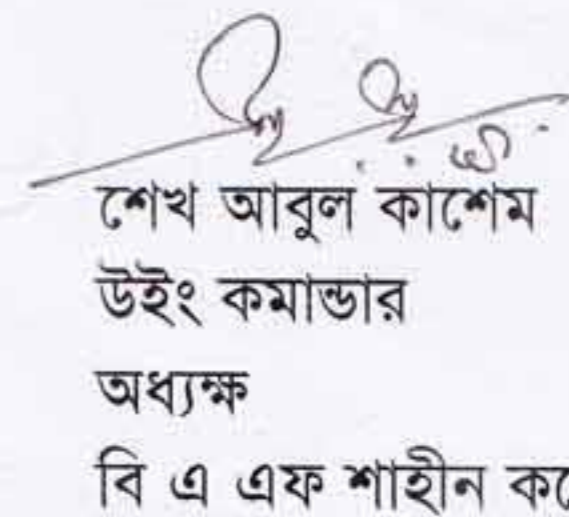 শেখ আবুল কাশেম
উইং কমান্ডার
অধ্যক্ষ
বি এ এফ শাহীন